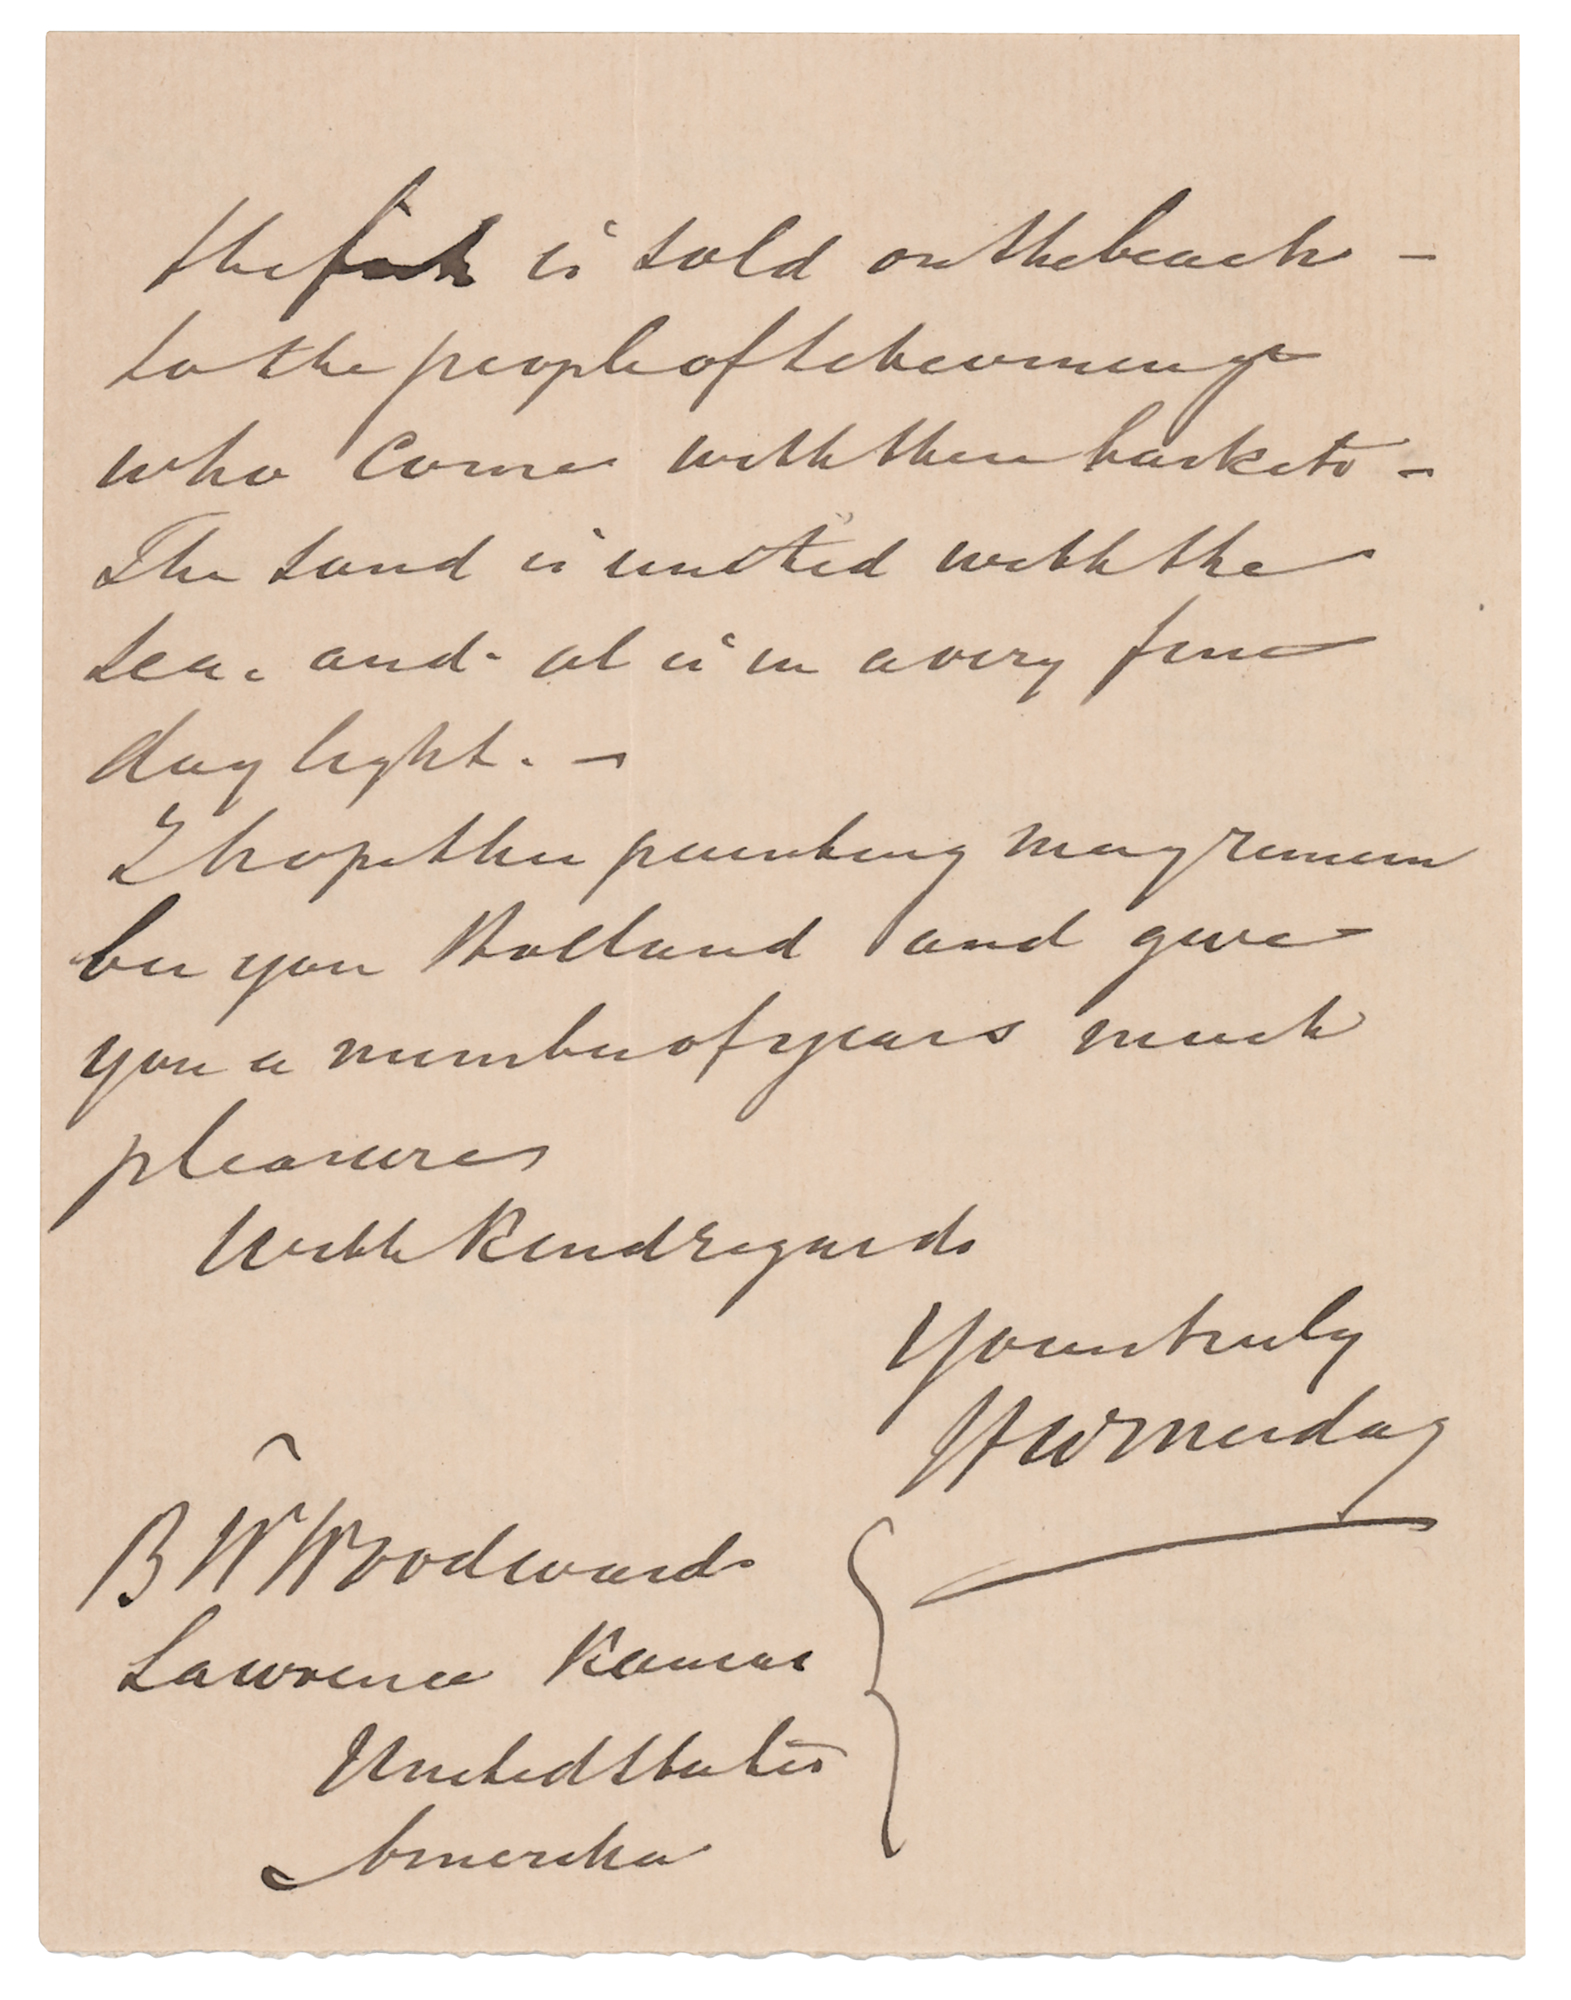 the fish is sold on the beach -
to the people of Scheveningen
who come with their baskets -
The sand is united with the
sea. and. al is in a very fine
day light. -
I hope the painting may remem
ber you Holland and give
you a number of years much
pleasures
With Kind regards
Yours truly
HW Mesdag
B W Woodward
Lawrence Kansas
United States
Amerika